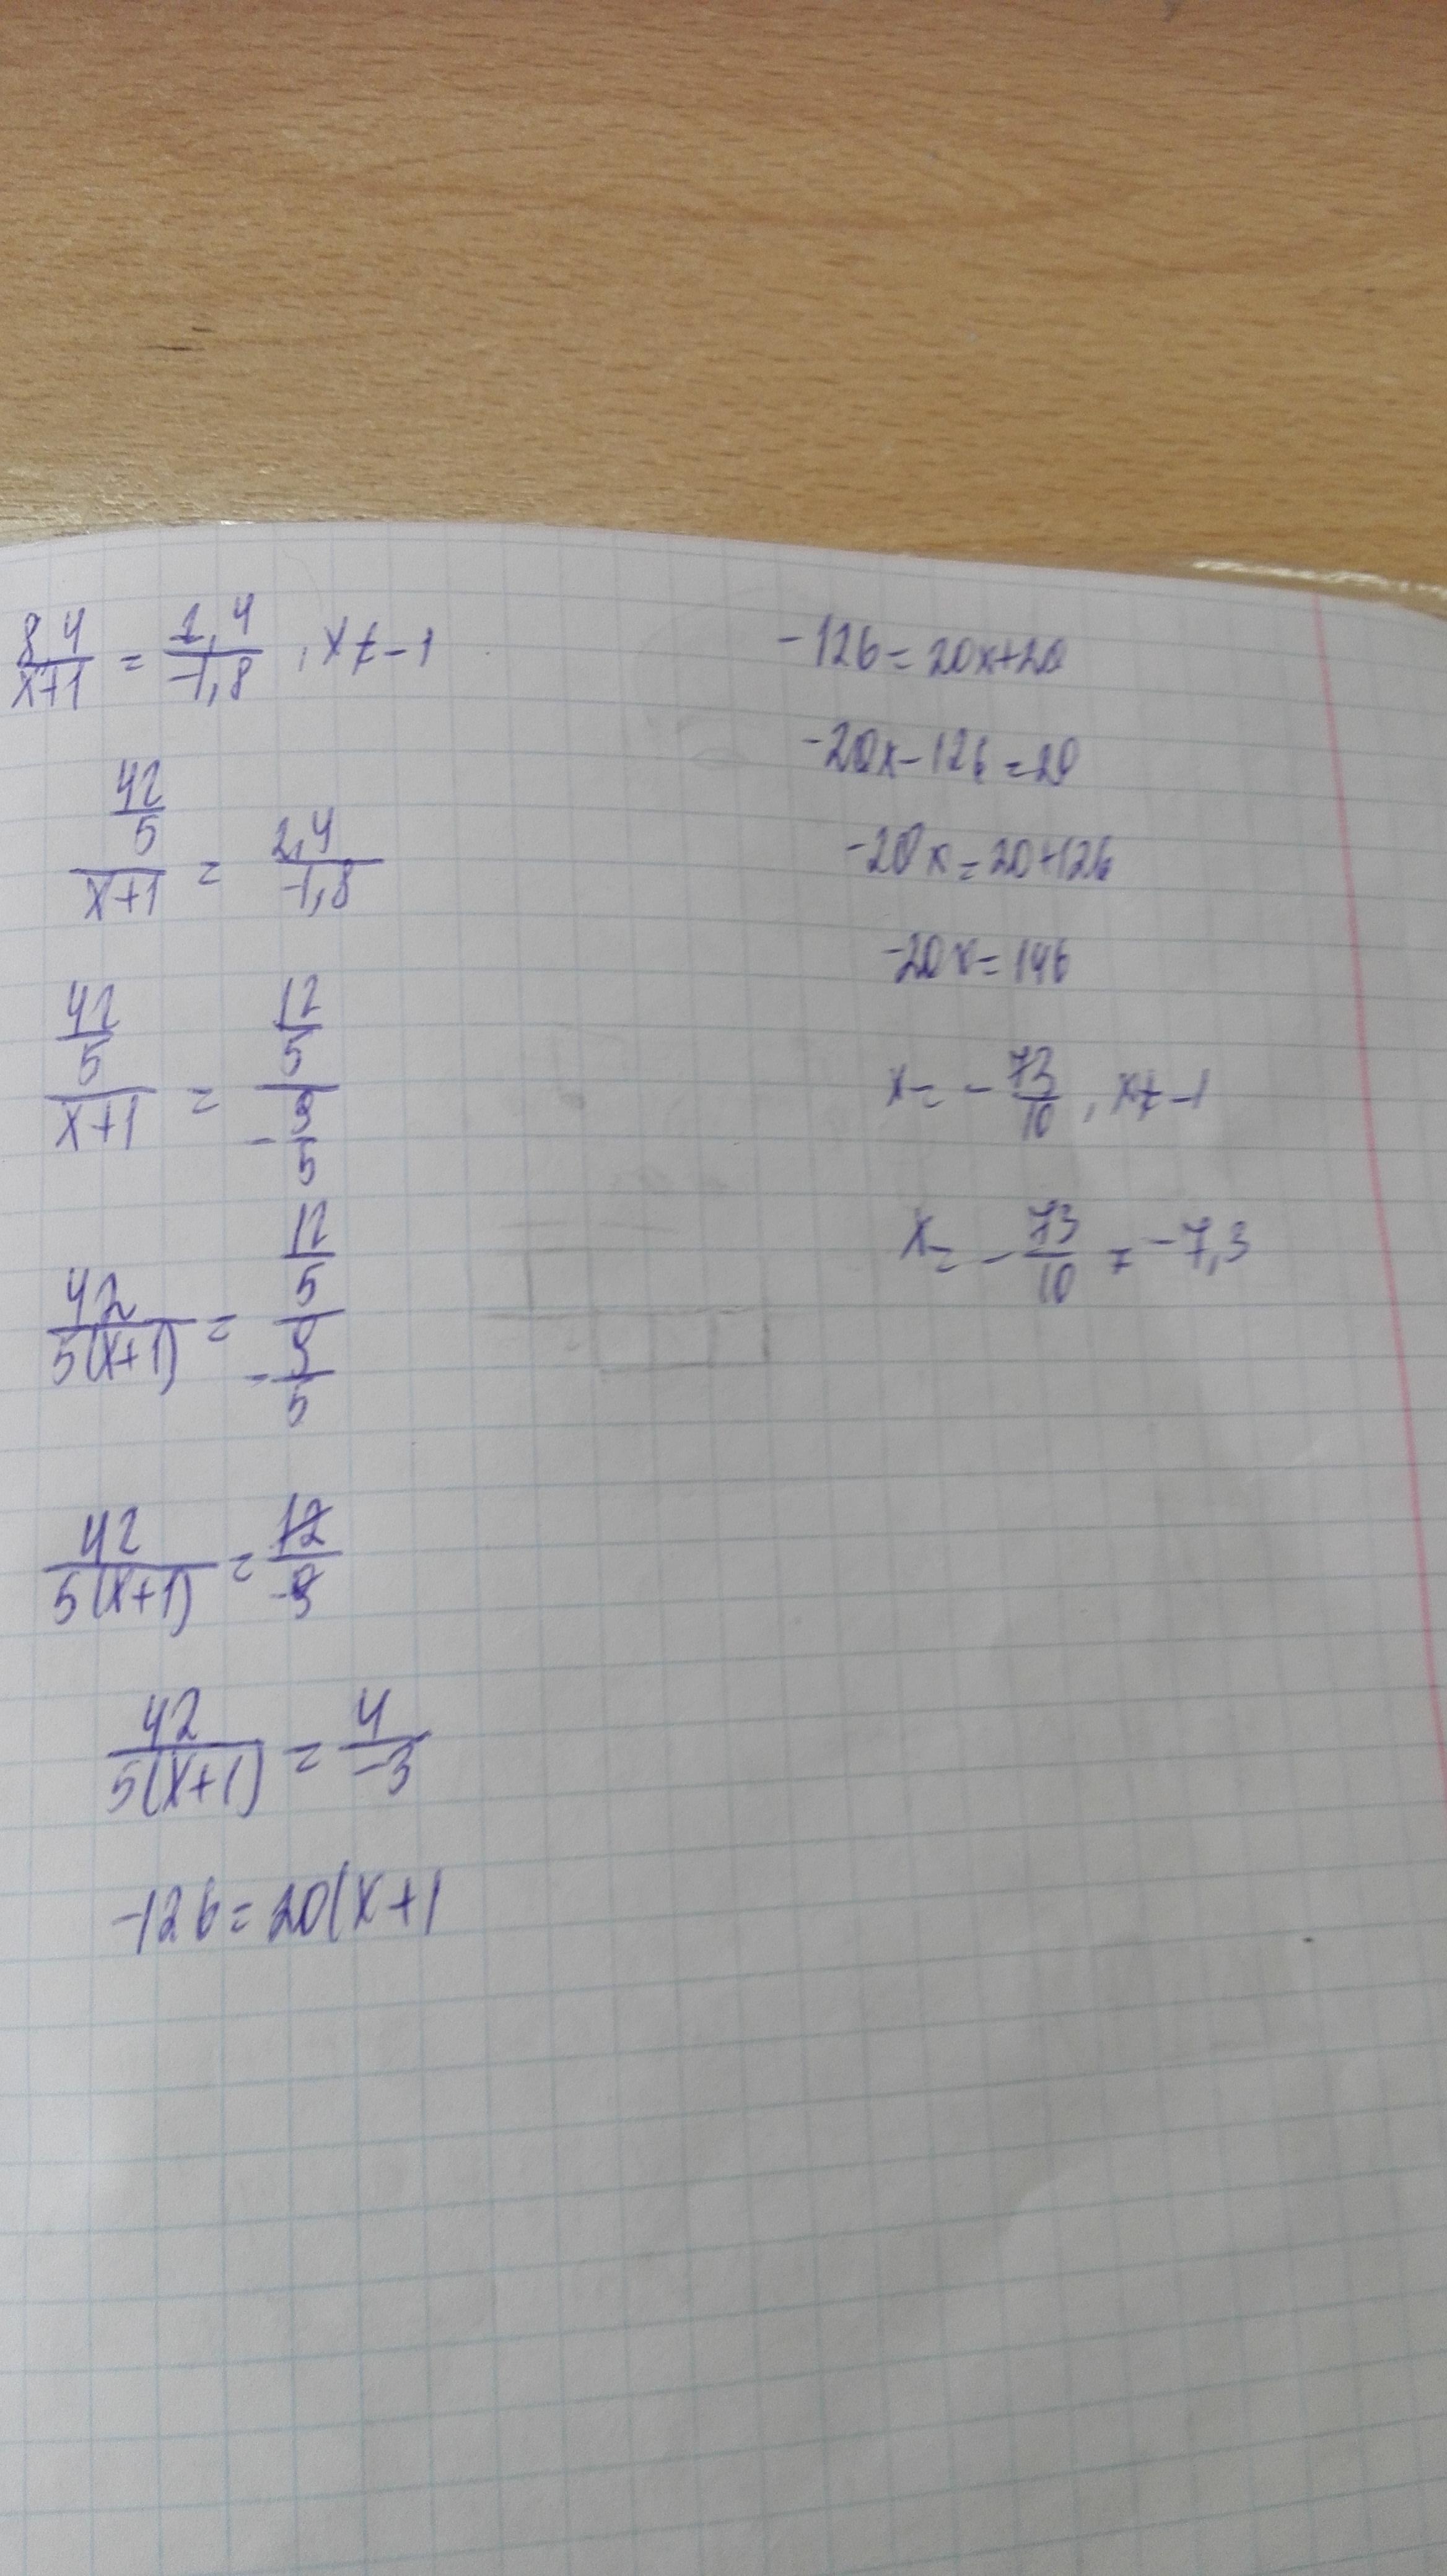 8,4/(x+1) = 2,4/(-1,8) , x≠-1
(42/5)/(x+1) = 2,4/(-1,8)
(42/5)/(x+1) = (12/5)/(-9/5)
42/(5(x+1)) = (12/5)/(-9/5)
42/(5(x+1)) = 12/(-9)
42/(5(x+1)) = 4/(-3)
-126=20(x+1
-126=20x+20
-20x-126=20
-20x=20+126
-20x=146
x=-73/10, x≠-1
x=-73/10=-7,3